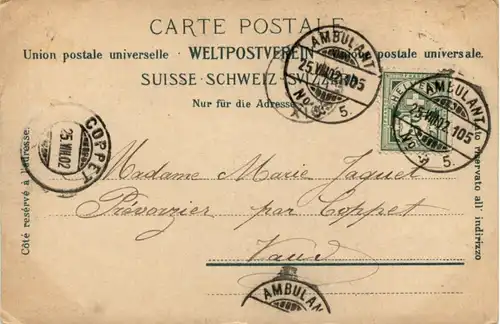 CARTE POSTALE
Union postale universelle · WELTPOSTVEREIN · Unione postale universale.
SUISSE · SCHWEIZ · SVIZZERA
Nur für die Adresse
Côté réservé à l'adresse.
Lato riservato all' indirizzo
Madame Marie Jaquet
Prévonzier par Coppet
Vaud
COPPET
25.VIII.02
AMBULANT
25.VIII.02.105
No. 5.
HELVETIA
AMBULANT
25.VIII.02.105
No. 5.
AMBULAN